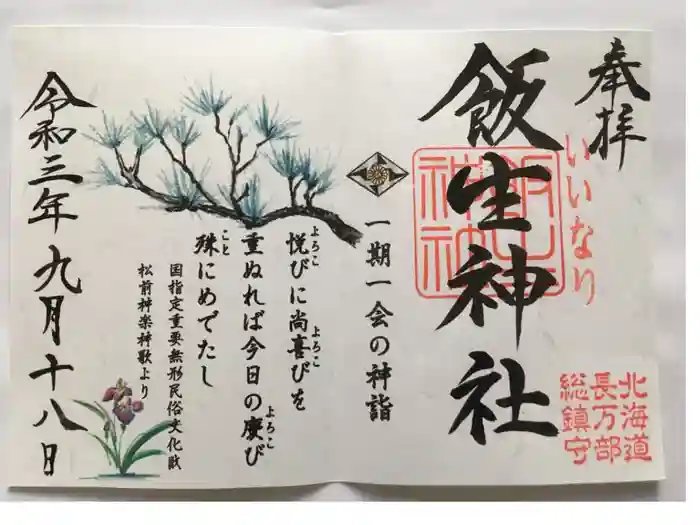 奉拝
いいなり
北海道
長万部
総鎮守
飯生神社
飯生
神社
一期一会の神詣
悦びに尚喜びを
よろこ
よろこ
重ぬれば今日の慶び
よろこ
殊にめでたし
こと
国指定重要無形民俗文化財
松前神楽神歌より
令和三年九月十八日